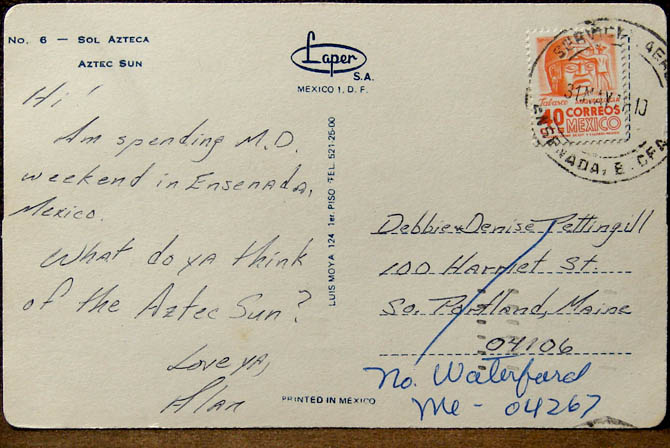 No. 6 — SOL AZTECA
AZTEC SUN
Laper
S.A.
MEXICO 1, D. F.
Hi!
Am spending M.D.
weekend in Ensenada,
Mexico.
What do ya think
of the Aztec Sun?
Love ya,
Alan
LUIS MOYA 124 1er. PISO TEL. 521-25-00
PRINTED IN MEXICO
Tabasco
40
CORREOS
MEXICO
ENSENADA, B. CFA
Debbie & Denise Pettingill
100 Harriet St.
So. Portland, Maine
04106
No. Waterford
Me - 04267